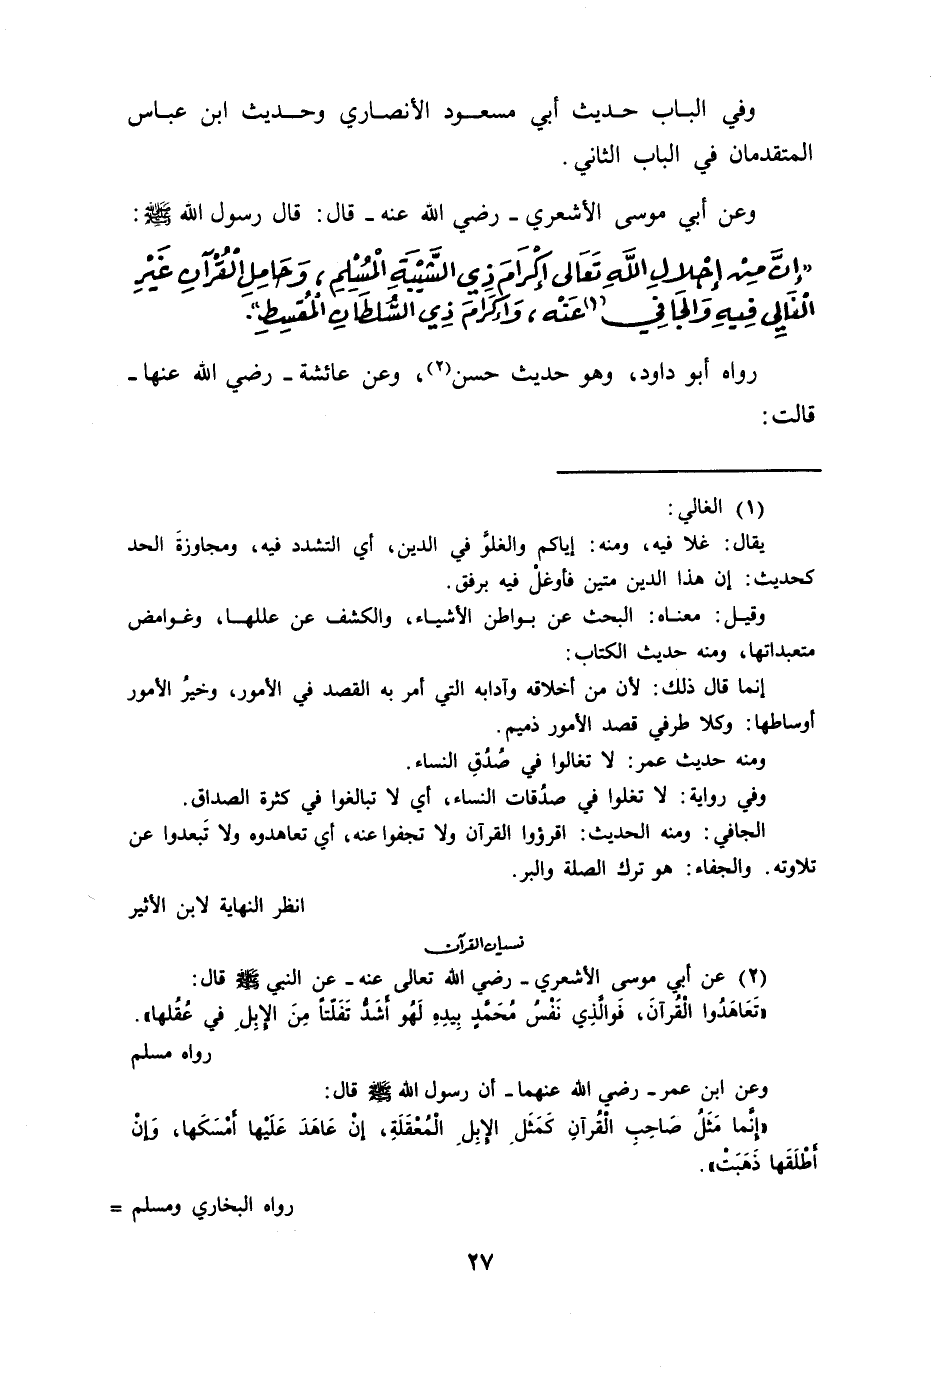 وفي الباب حديث أبي مسعود الأنصاري وحديث ابن عباس
المتقدمان في الباب الثاني .
وعن أبي موسى الأشعري ـ رضي الله عنه ـ قال : قال رسول الله ﷺ :
«إنَّ مِنْ إجْلالِ اللَّهِ تَعَالى إكْرَامَ ذِي الشَّيْبَةِ الْمُسْلِمِ ، وَحَامِلِ الْقُرْآنِ غَيْرِ
الْغَالِي فِيهِ وَالْجَافِي(١) عَنْه ، وَإكْرَامَ ذِي السُّلطَانِ الْمُقْسِطِ» .
رواه أبو داود، وهو حديث حسن(٢)، وعن عائشة ـ رضي الله عنها ـ
قالت :
(١) الغالي :
يقال : غلا فيه، ومنه : إياكم والغلوَّ في الدين، أي التشدد فيه، ومجاوزةَ الحد
كحديث : إن هذا الدين متين فأوغلْ فيه برفق .
وقيل : معناه : البحث عن بواطن الأشياء، والكشف عن عللها، وغوامض
متعبداتها، ومنه حديث الكتاب :
إنما قال ذلك : لأن من أخلاقه وآدابه التي أمر به القصد في الأمور، وخيرُ الأمور
أوساطها : وكلا طرفي قصد الأمور ذميم .
ومنه حديث عمر : لا تغالوا في صُدُقِ النساء .
وفي رواية : لا تغلوا في صدُقات النساء، أي لا تبالغوا في كثرة الصداق .
الجافي : ومنه الحديث : اقرؤوا القرآن ولا تجفوا عنه، أي تعاهدوه ولا تَبعدوا عن
تلاوته . والجفاء : هو ترك الصلة والبر .
انظر النهاية لابن الأثير
نسيان القرآن
(٢) عن أبي موسى الأشعري ـ رضي الله تعالى عنه ـ عن النبي ﷺ قال :
«تَعَاهَدُوا الْقُرآنَ، فَوالَّذِي نَفْسُ مُحَمَّدٍ بِيدِهِ لَهُو أَشَدُّ تَفَلّتاً مِنَ الإِبِلِ في عُقُلها» .
رواه مسلم
وعن ابن عمر ـ رضي الله عنهما ـ أن رسول الله ﷺ قال :
«إنَّما مَثَلُ صَاحِبِ الْقُرآنِ كَمَثَلِ الإِبِلِ الْمُعْقَلَةِ، إنْ عَاهَدَ عَلَيْها أَمْسَكَها، وَإنْ
أَطْلَقَها ذَهَبَتْ» .
رواه البخاري ومسلم =
٢٧